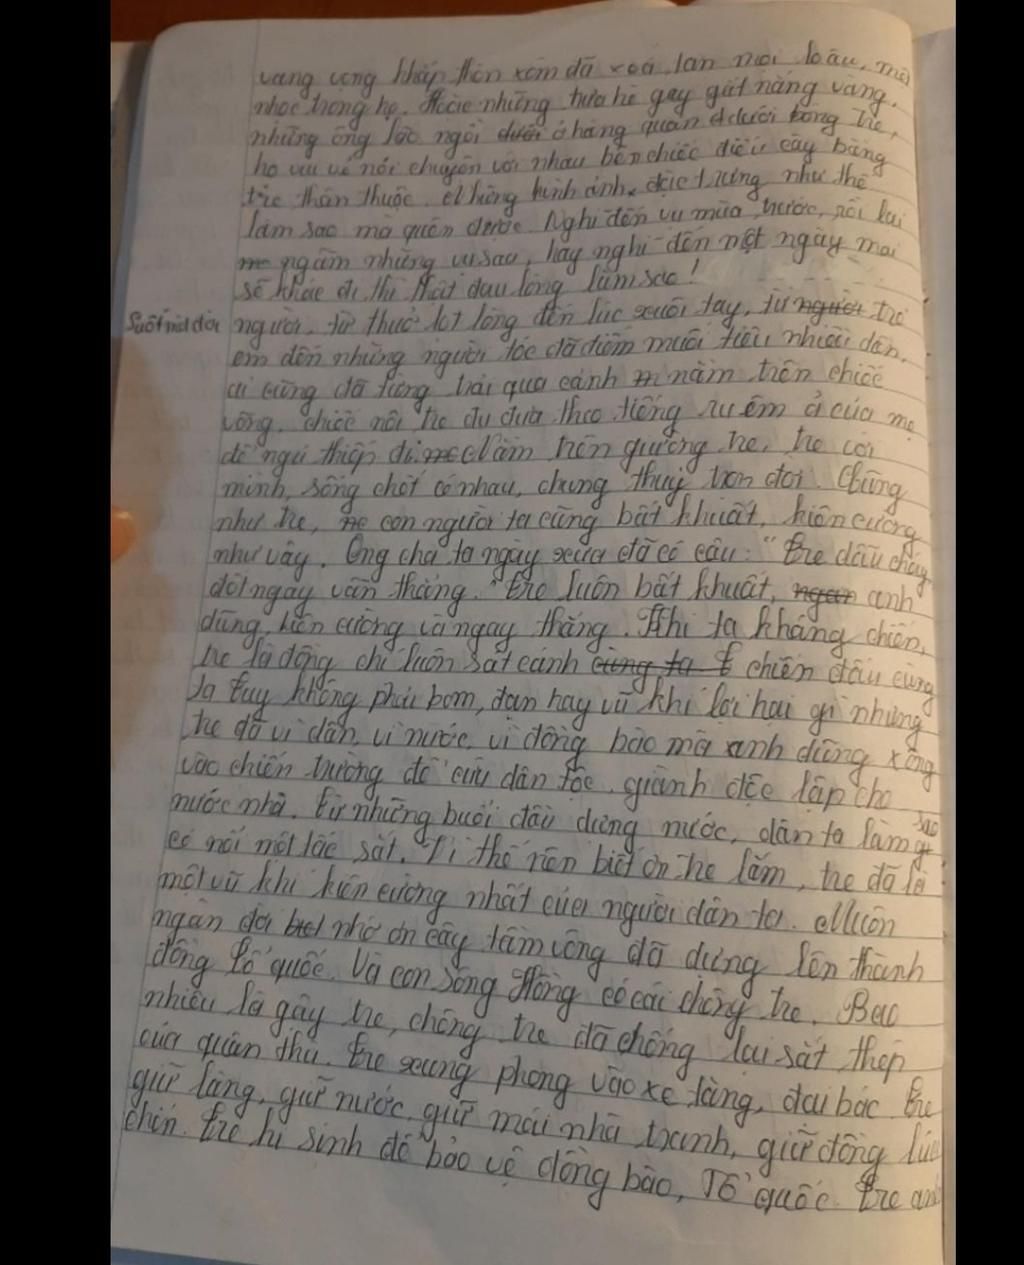 vang vọng khắp thôn xóm đã xoá tan mọi lo âu, mệ
nhọc trong họ. Hoặc những trưa hè gay gắt nắng vàng,
những ông lão ngồi dưới ở hàng quán dưới bóng tre,
họ vui vẻ nói chuyện với nhau bên chiếc điếu cày bằng
tre thân thuộc. Những hình ảnh đặc trưng như thế
làm sao mà quên được. Nghĩ đến vụ mùa trước, rồi lại
ngẫm những vụ sau, hay nghĩ đến một ngày mai
sẽ khác đi thì thật đau lòng làm sao!
Suốt một đời người, từ thuở lọt lòng đến lúc xuôi tay, từ người trẻ
em đến những người tóc đã điểm muối tiêu nhiều dần,
ai cũng đã từng trải qua cảnh nằm trên chiếc
võng, chiếc nôi tre đu đưa theo tiếng ru êm ả của mẹ
để ngủ thiếp đi. Nằm trên giường tre, tre với
mình, sống chết có nhau, chung thuỷ trọn đời. Cũng
như tre, con người ta cũng bất khuất, kiên cường
như vậy. Ông cha ta ngày xưa đã có câu: "Tre dẫu cháy
đốt ngay vẫn thẳng." Tre luôn bất khuất, ngan anh
dũng, kiên cường và ngay thẳng. Khi ta kháng chiến,
tre là đồng chí luôn sát cánh cùng ta chiến đấu cùng
ta. Tuy không phải bom, đạn hay vũ khí lợi hại gì nhưng
tre đã vì dân, vì nước, vì đồng bào mà anh dũng xông
vào chiến trường để cứu dân tộc, giành độc lập cho
nước nhà. Từ những buổi đầu dựng nước, dân ta làm sao
có nổi một tấc sắt. Vì thế nên biết ơn tre lắm, tre đã là
một vũ khí kiên cường nhất của người dân ta. Muôn
ngàn đời nhớ ơn cây tầm vông đã dựng lên thành
đồng Tổ quốc. Và con sông Hồng có cái chông tre. Bao
nhiêu là gậy tre, chông tre đã chống lại sắt thép
của quân thù. Tre xung phong vào xe tăng, đại bác. Tre
giữ làng, giữ nước, giữ mái nhà tranh, giữ đồng lúa
chín. Tre hi sinh để bảo vệ đồng bào, Tổ quốc. Tre anh